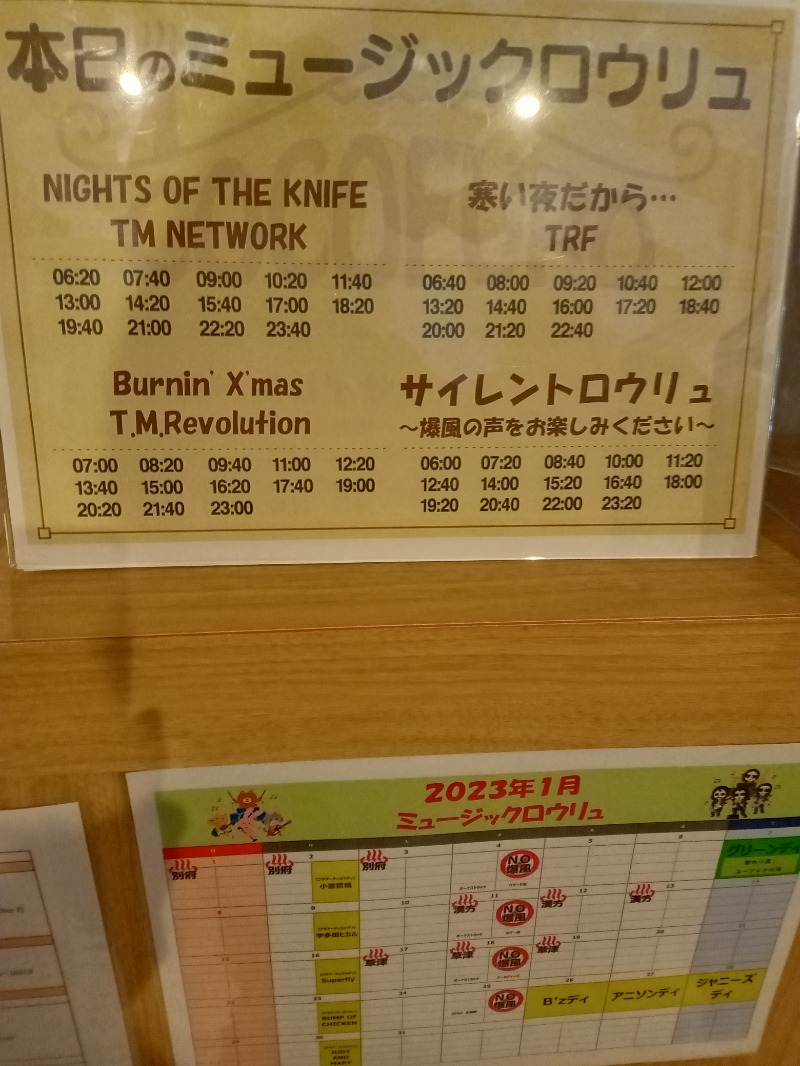 本日のミュージックロウリュ
NIGHTS OF THE KNIFE
TM NETWORK
06:20 07:40 09:00 10:20 11:40
13:00 14:20 15:40 17:00 18:20
19:40 21:00 22:20 23:40
寒い夜だから…
TRF
06:40 08:00 09:20 10:40 12:00
13:20 14:40 16:00 17:20 18:40
20:00 21:20 22:40
Burnin' X'mas
T.M.Revolution
07:00 08:20 09:40 11:00 12:20
13:40 15:00 16:20 17:40 19:00
20:20 21:40 23:00
サイレントロウリュ
～爆風の声をお楽しみください～
06:00 07:20 08:40 10:00 11:20
12:40 14:00 15:20 16:40 18:00
19:20 20:40 22:00 23:20
2023年1月
ミュージックロウリュ
1 2 3 4 5 6
別府 別府 別府 NO爆風 グリーンデイ
小室哲哉
8 9 10 11 12 13
漢方 NO爆風 漢方 漢方
宇多田ヒカル
16 17 18 19 20
草津 草津 NO爆風 草津
Superfly
22 23 24 25 26 27
NO爆風 B'zデイ アニソンデイ ジャニーズデイ
BUMP OF
CHICKEN
29 30 31
JUDY
AND
MARY